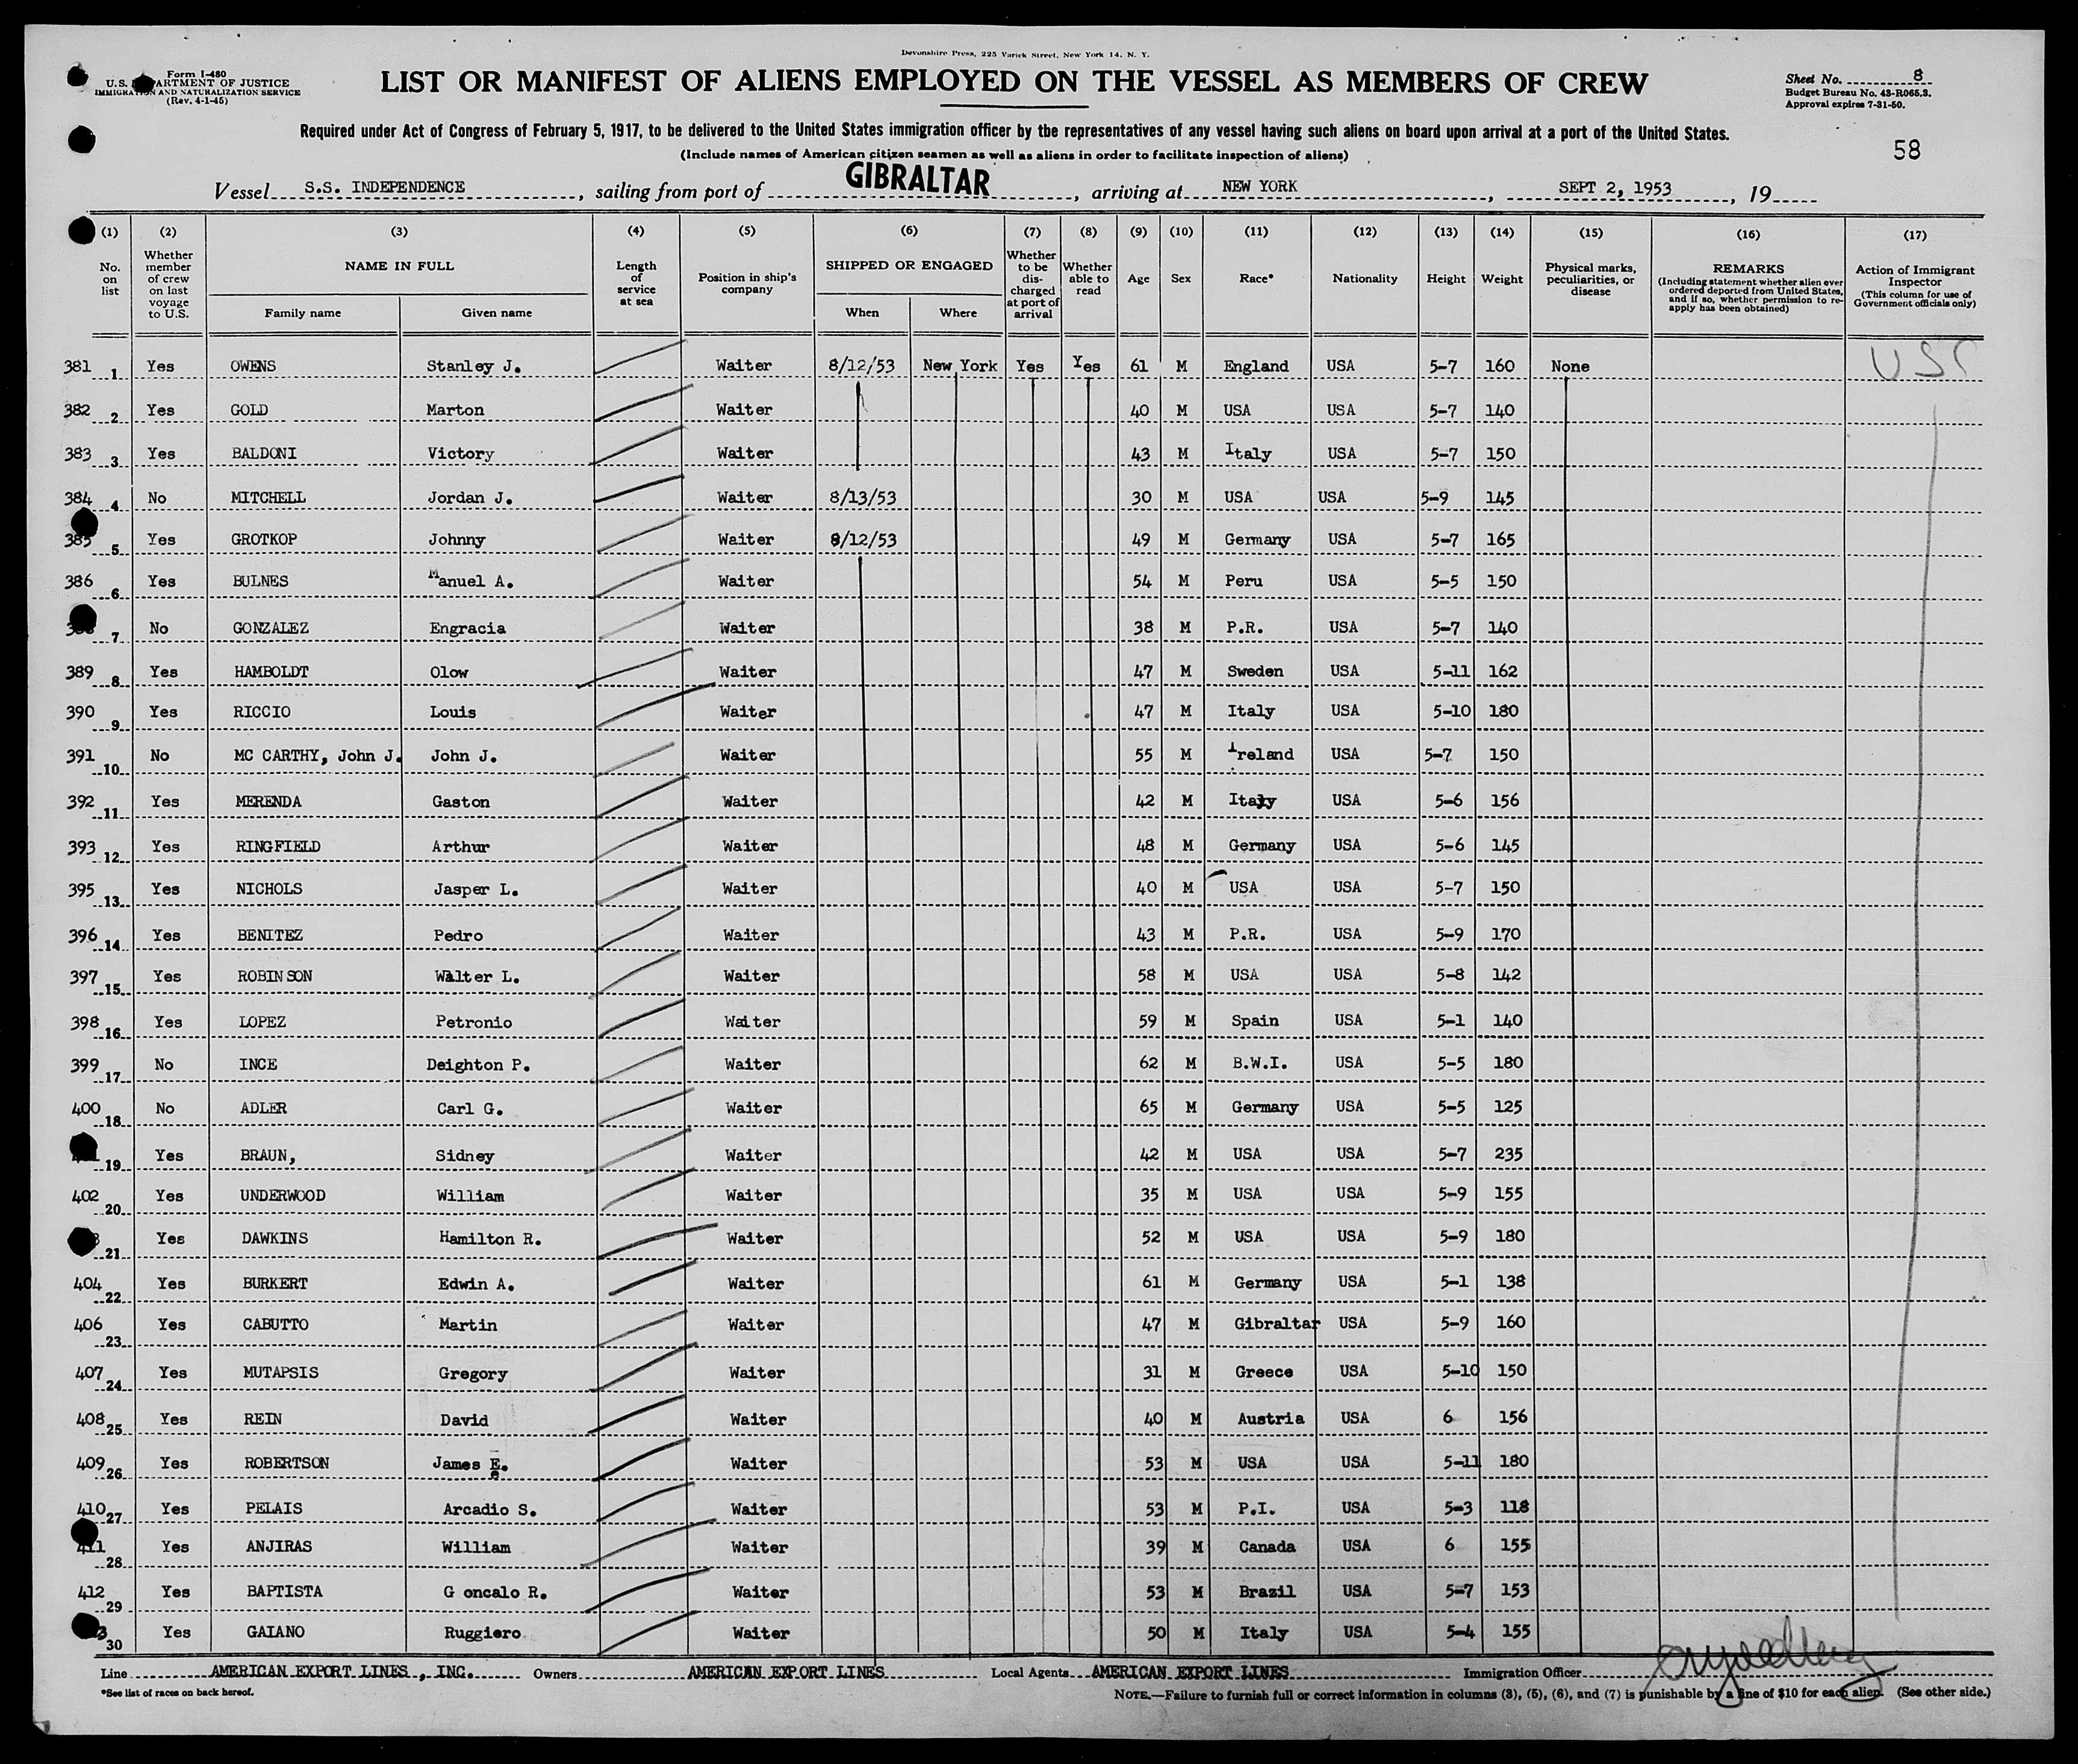 Devonshire Press, 225 Varick Street, New York 14, N. Y.
Form I-480
U.S. DEPARTMENT OF JUSTICE
IMMIGRATION AND NATURALIZATION SERVICE
(Rev. 4-1-45)
LIST OR MANIFEST OF ALIENS EMPLOYED ON THE VESSEL AS MEMBERS OF CREW
Sheet No. 8
Budget Bureau No. 43-R065.3.
Approval expires 7-31-50.
Required under Act of Congress of February 5, 1917, to be delivered to the United States immigration officer by the representatives of any vessel having such aliens on board upon arrival at a port of the United States.
(Include names of American citizen seamen as well as aliens in order to facilitate inspection of aliens)
58
Vessel S.S. INDEPENDENCE, sailing from port of GIBRALTAR, arriving at NEW YORK, SEPT 2, 1953, 19
(1) (2) (3) (4) (5) (6) (7) (8) (9) (10) (11) (12) (13) (14) (15) (16) (17)
No. on list
Whether member of crew on last voyage to U.S.
NAME IN FULL
Family name
Given name
Length of service at sea
Position in ship's company
SHIPPED OR ENGAGED
When
Where
Whether to be discharged at port of arrival
Whether able to read
Age
Sex
Race*
Nationality
Height
Weight
Physical marks, peculiarities, or disease
REMARKS
(Including statement whether alien ever ordered deported from United States, and if so, whether permission to re-apply has been obtained)
Action of Immigrant Inspector
(This column for use of Government officials only)
381 1 Yes OWENS Stanley J. Waiter 8/12/53 New York Yes Yes 61 M England USA 5-7 160 None USC
382 2 Yes GOLD Marton Waiter 40 M USA USA 5-7 140
383 3 Yes BALDONI Victory Waiter 43 M Italy USA 5-7 150
384 4 No MITCHELL Jordan J. Waiter 8/13/53 30 M USA USA 5-9 145
385 5 Yes GROTKOP Johnny Waiter 8/12/53 49 M Germany USA 5-7 165
386 6 Yes BULNES Manuel A. Waiter 54 M Peru USA 5-5 150
7 No GONZALEZ Engracia Waiter 38 M P.R. USA 5-7 140
389 8 Yes HAMBOLDT Olow Waiter 47 M Sweden USA 5-11 162
390 9 Yes RICCIO Louis Waiter 47 M Italy USA 5-10 180
391 10 No MC CARTHY, John J. John J. Waiter 55 M Ireland USA 5-7 150
392 11 Yes MERENDA Gaston Waiter 42 M Italy USA 5-6 156
393 12 Yes RINGFIELD Arthur Waiter 48 M Germany USA 5-6 145
395 13 Yes NICHOLS Jasper L. Waiter 40 M USA USA 5-7 150
396 14 Yes BENITEZ Pedro Waiter 43 M P.R. USA 5-9 170
397 15 Yes ROBINSON Walter L. Waiter 58 M USA USA 5-8 142
398 16 Yes LOPEZ Petronio Waiter 59 M Spain USA 5-1 140
399 17 No INCE Deighton P. Waiter 62 M B.W.I. USA 5-5 180
400 18 No ADLER Carl G. Waiter 65 M Germany USA 5-5 125
19 Yes BRAUN, Sidney Waiter 42 M USA USA 5-7 235
402 20 Yes UNDERWOOD William Waiter 35 M USA USA 5-9 155
21 Yes DAWKINS Hamilton R. Waiter 52 M USA USA 5-9 180
404 22 Yes BURKERT Edwin A. Waiter 61 M Germany USA 5-1 138
406 23 Yes CABUTTO Martin Waiter 47 M Gibraltar USA 5-9 160
407 24 Yes MUTAPSIS Gregory Waiter 31 M Greece USA 5-10 150
408 25 Yes REIN David Waiter 40 M Austria USA 6 156
409 26 Yes ROBERTSON James E. Waiter 53 M USA USA 5-11 180
410 27 Yes PELAIS Arcadio S. Waiter 53 M P.I. USA 5-3 118
411 28 Yes ANJIRAS William Waiter 39 M Canada USA 6 155
412 29 Yes BAPTISTA G oncalo R. Waiter 53 M Brazil USA 5-7 153
30 Yes GAIANO Ruggiero Waiter 50 M Italy USA 5-4 155
Line AMERICAN EXPORT LINES, INC. Owners AMERICAN EXPORT LINES Local Agents AMERICAN EXPORT LINES Immigration Officer
*See list of races on back hereof.
NOTE.—Failure to furnish full or correct information in columns (3), (5), (6), and (7) is punishable by a fine of $10 for each alien. (See other side.)